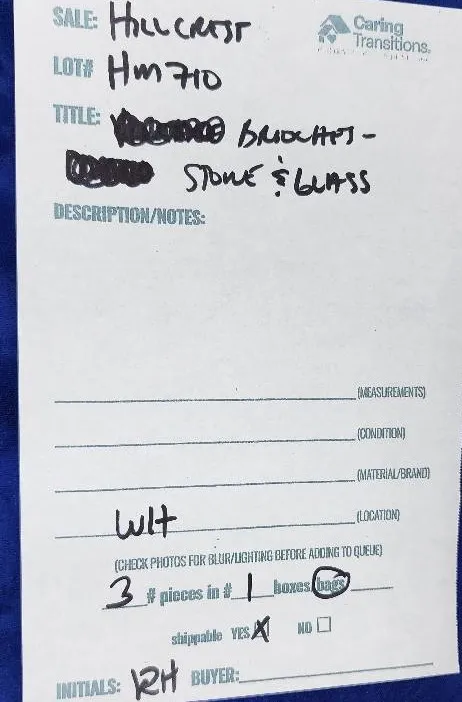 SALE: HILLCREST
Caring
Transitions.
LOT# HM710
TITLE: BROCHES-
STONE & GLASS
DESCRIPTION/NOTES:
(MEASUREMENTS)
(CONDITION)
(MATERIAL/BRAND)
WH (LOCATION)
(CHECK PHOTOS FOR BLUR/LIGHTING BEFORE ADDING TO QUEUE)
3 # pieces in # 1 boxes bags
shippable YES X NO
INITIALS: RH BUYER: